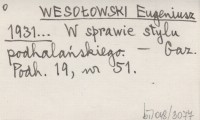 WESOŁOWSKI Eugeniusz
1931... W sprawie stylu
podhalańskiego. – Gaz.
Podh. 19, nr 51.